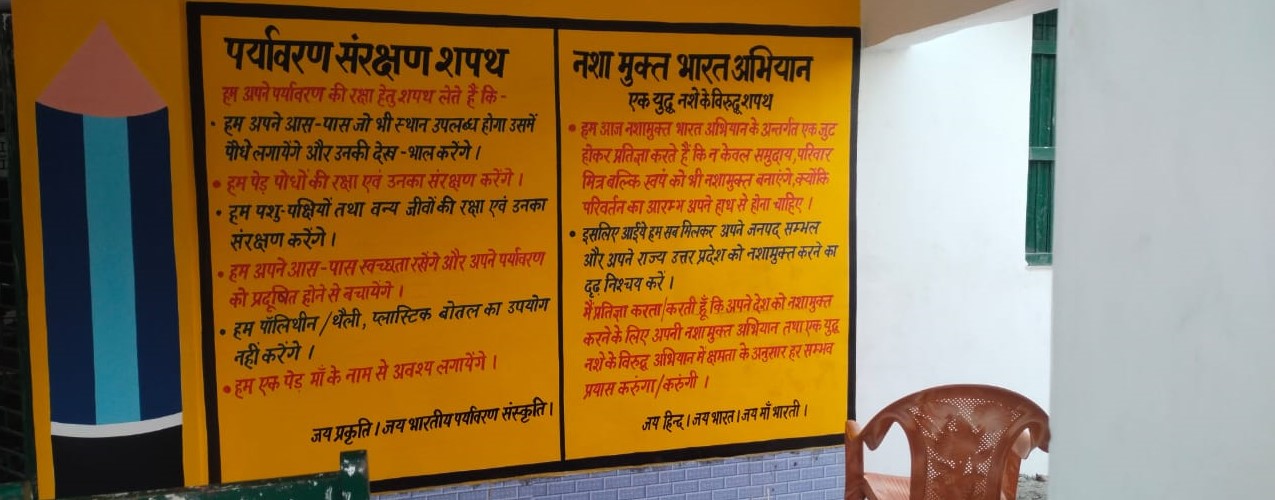 पर्यावरण संरक्षण शपथ
हम अपने पर्यावरण की रक्षा हेतु शपथ लेते हैं कि -
• हम अपने आस-पास जो भी स्थान उपलब्ध होगा उसमें
पौधे लगायेंगे और उनकी देख-भाल करेंगे ।
• हम पेड़ पोधों की रक्षा एवं उनका संरक्षण करेंगे ।
• हम पशु-पक्षियों तथा वन्य जीवों की रक्षा एवं उनका
संरक्षण करेंगे ।
• हम अपने आस-पास स्वच्छता रखेंगे और अपने पर्यावरण
को प्रदूषित होने से बचायेंगे ।
• हम पॉलिथीन/थैली, प्लास्टिक बोतल का उपयोग
नहीं करेंगे ।
• हम एक पेड़ माँ के नाम से अवश्य लगायेंगे ।
जय प्रकृति । जय भारतीय पर्यावरण संस्कृति ।
नशा मुक्त भारत अभियान
एक युद्ध नशे के विरुद्ध शपथ
• हम आज नशामुक्त भारत अभियान के अन्तर्गत एक जुट
होकर प्रतिज्ञा करते हैं कि न केवल समुदाय, परिवार
मित्र बल्कि स्वयं को भी नशामुक्त बनाएंगे, क्योंकि
परिवर्तन का आरम्भ अपने हाथ से होना चाहिए ।
• इसलिए आईये हम सब मिलकर अपने जनपद सम्भल
और अपने राज्य उत्तर प्रदेश को नशामुक्त करने का
दृढ़ निश्चय करें ।
मैं प्रतिज्ञा करता/करती हूँ कि अपने देश को नशामुक्त
करने के लिए अपनी नशा मुक्त अभियान तथा एक युद्ध
नशे के विरुद्ध अभियान में क्षमता के अनुसार हर सम्भव
प्रयास करुंगा/करुंगी ।
जय हिन्द । जय भारत । जय माँ भारती ।